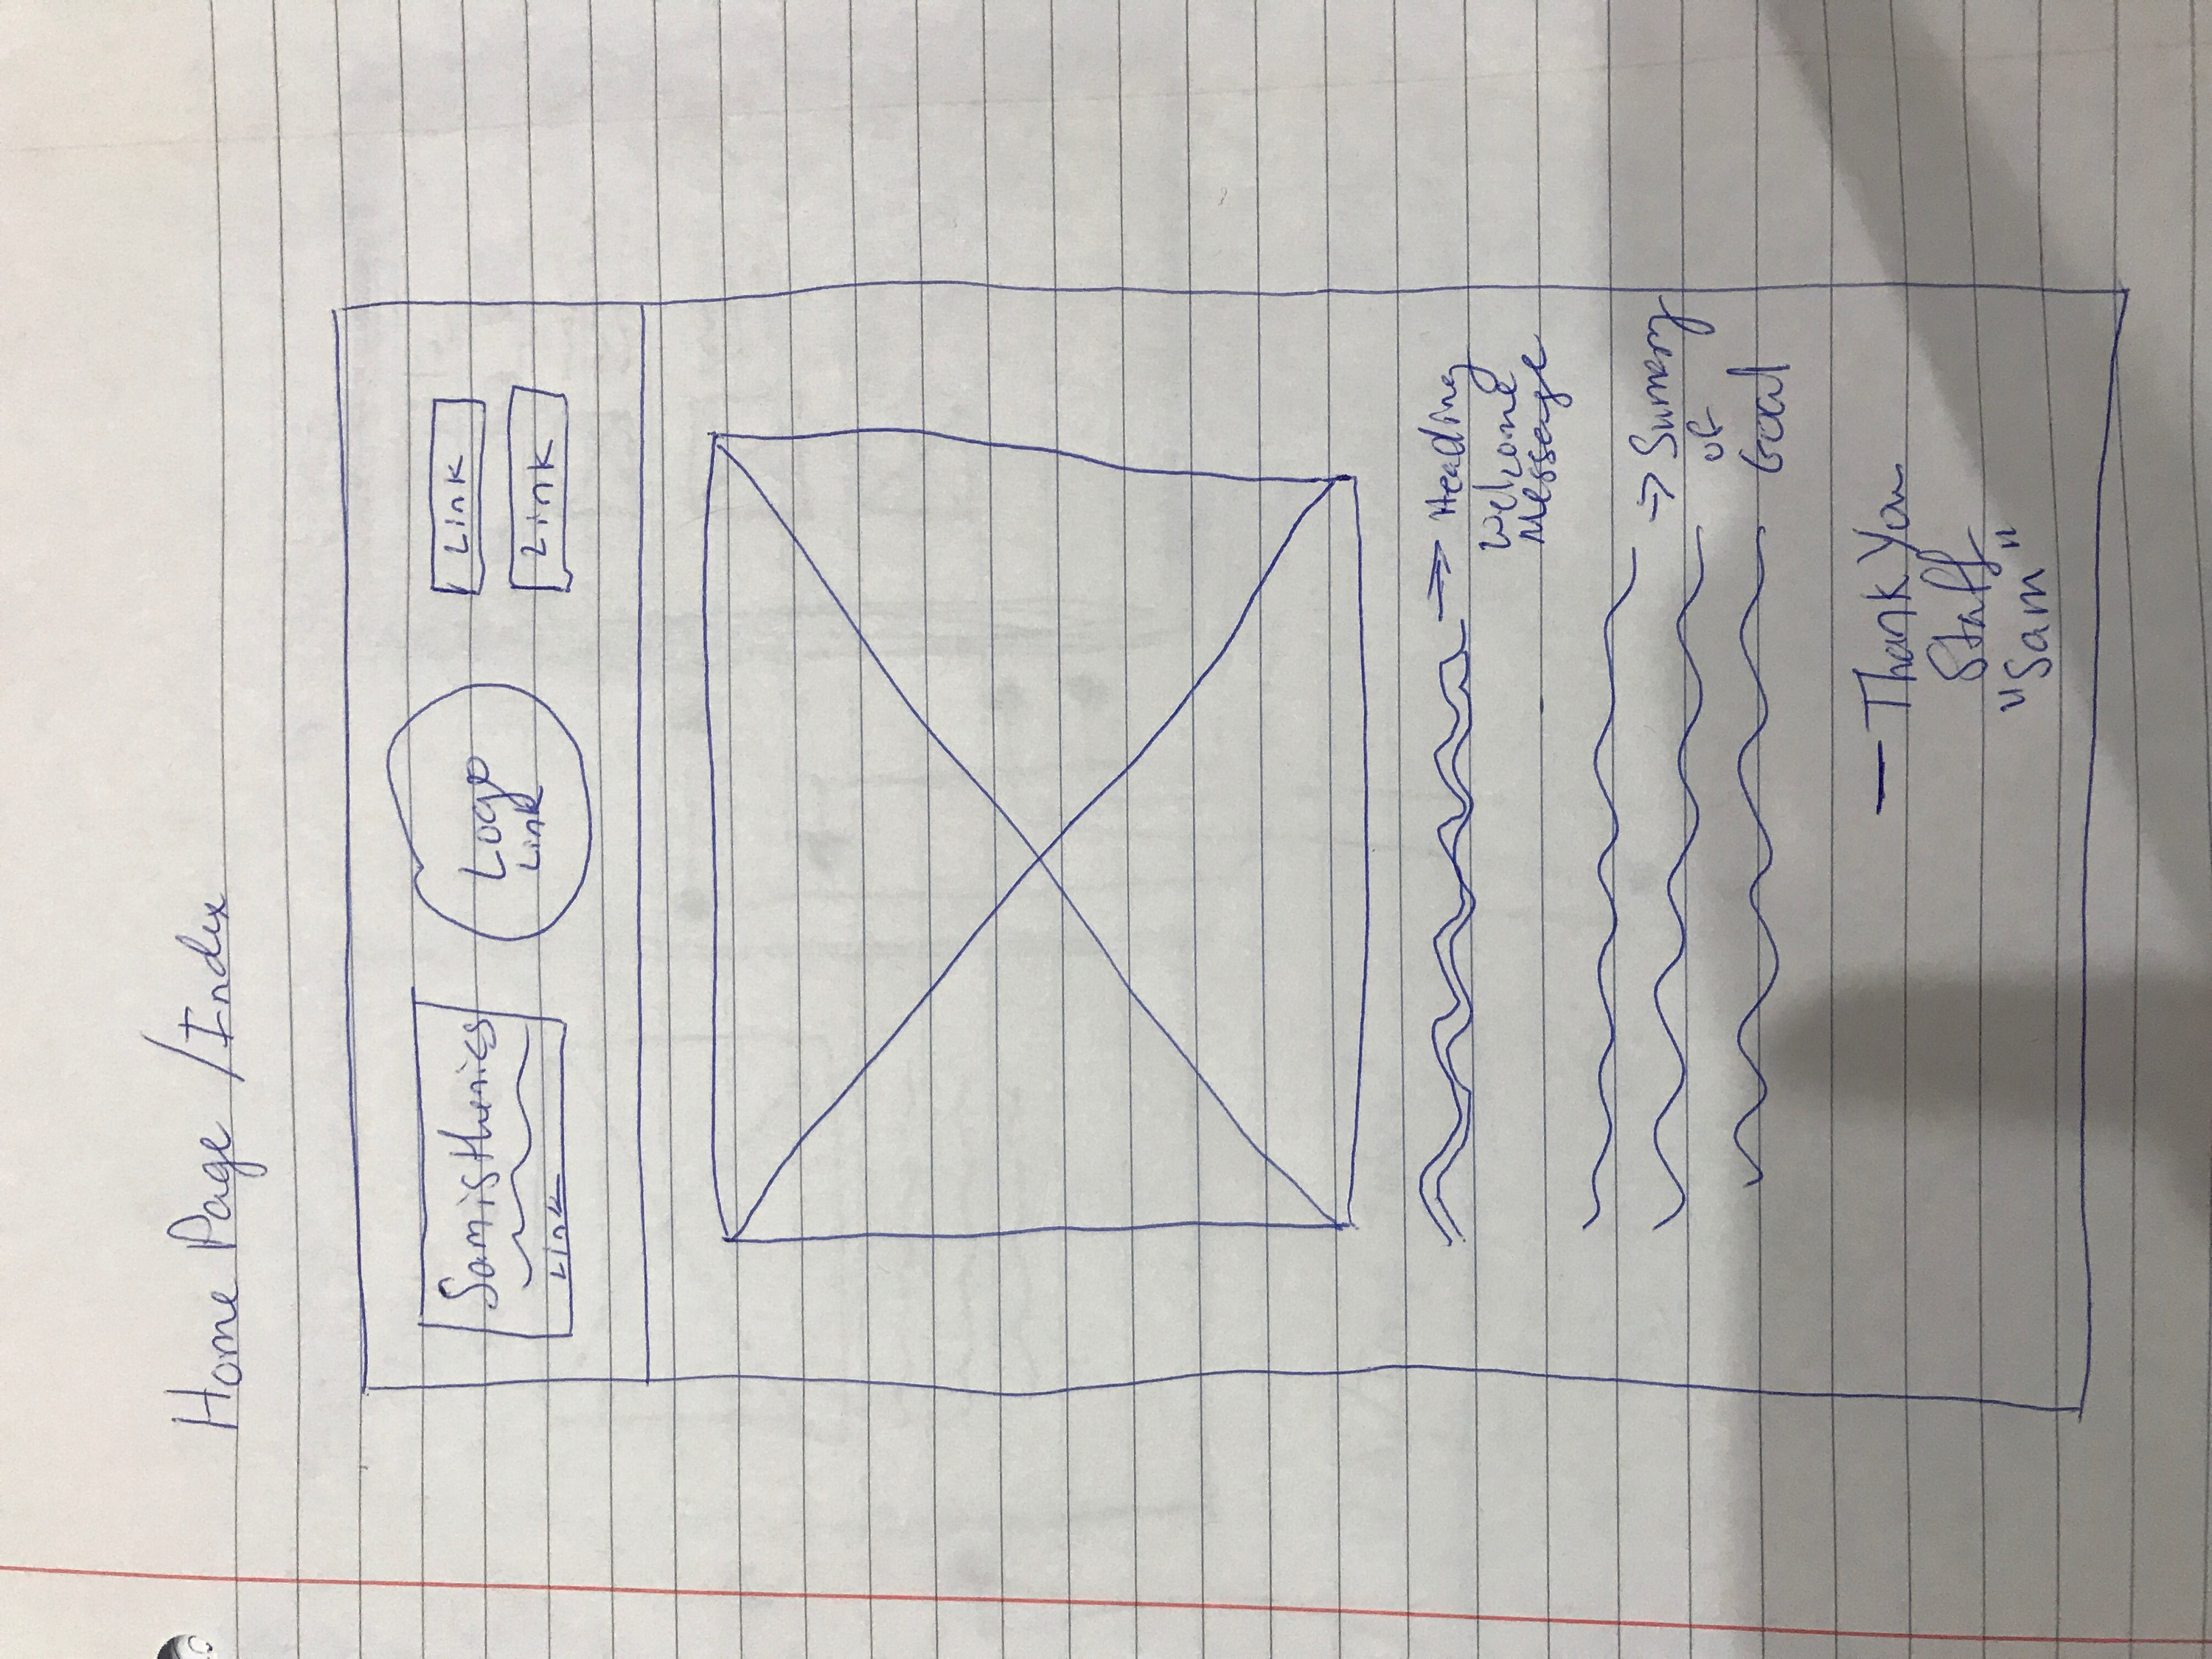 Home Page /Index
Samisthenics
Link
Logo
Link
Link
Link
→ Heading
Welcome
Message
→ Sumery
of
Goal
— Thank You
Staff
"Sam"